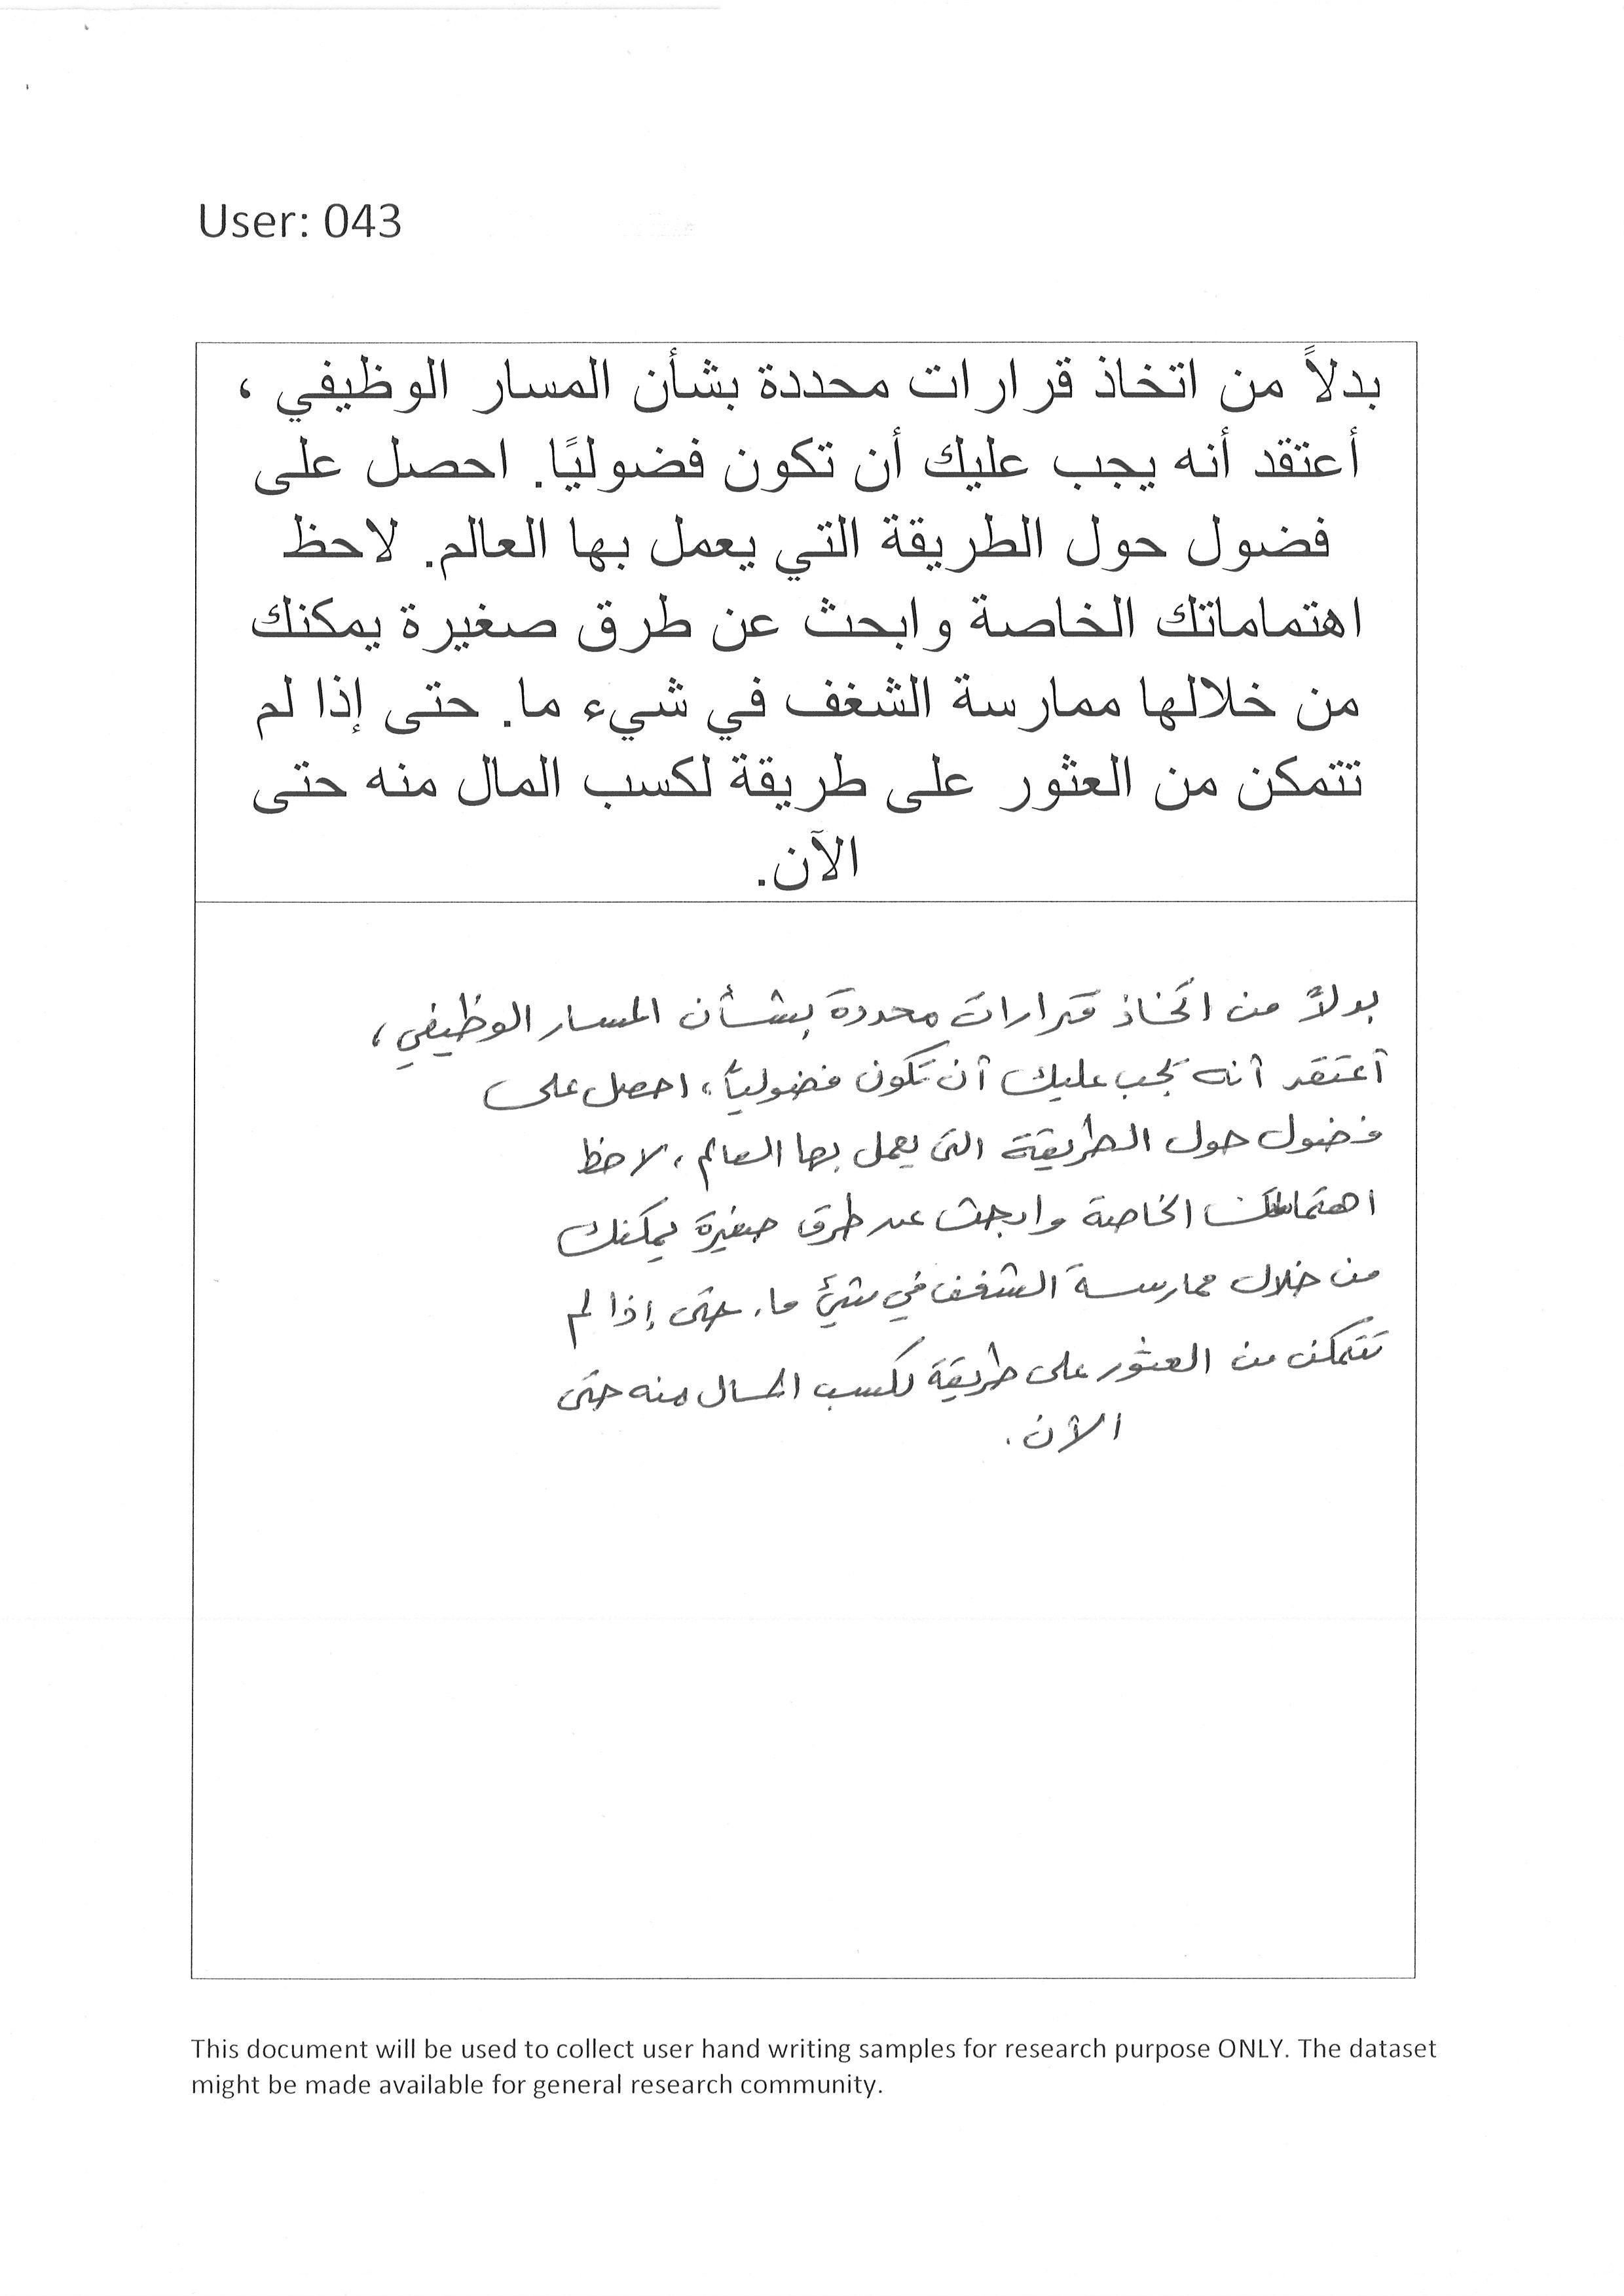 User: 043
بدلاً من اتخاذ قرارات محددة بشأن المسار الوظيفي ،
أعتقد أنه يجب عليك أن تكون فضوليًا. احصل على
فضول حول الطريقة التي يعمل بها العالم. لاحظ
اهتماماتك الخاصة وابحث عن طرق صغيرة يمكنك
من خلالها ممارسة الشغف في شيء ما. حتى إذا لم
تتمكن من العثور على طريقة لكسب المال منه حتى
الآن.
بدلاً من اتخاذ قرارات محددة بشأن المسار الوظيفي ،
أعتقد أنه يجب عليك أن تكون فضولياً، احصل على
فضول حول الطريقة التى يعمل بها العالم ، لاحظ
الخاصة وابحث عن طرق صغيرة يمكنك
من خلال ممارسة الشغف في شئ ما. حتى إذا لم
تتمكن من العثور على طريقة لكسب المال منه حتى
الآن.
This document will be used to collect user hand writing samples for research purpose ONLY. The dataset
might be made available for general research community.